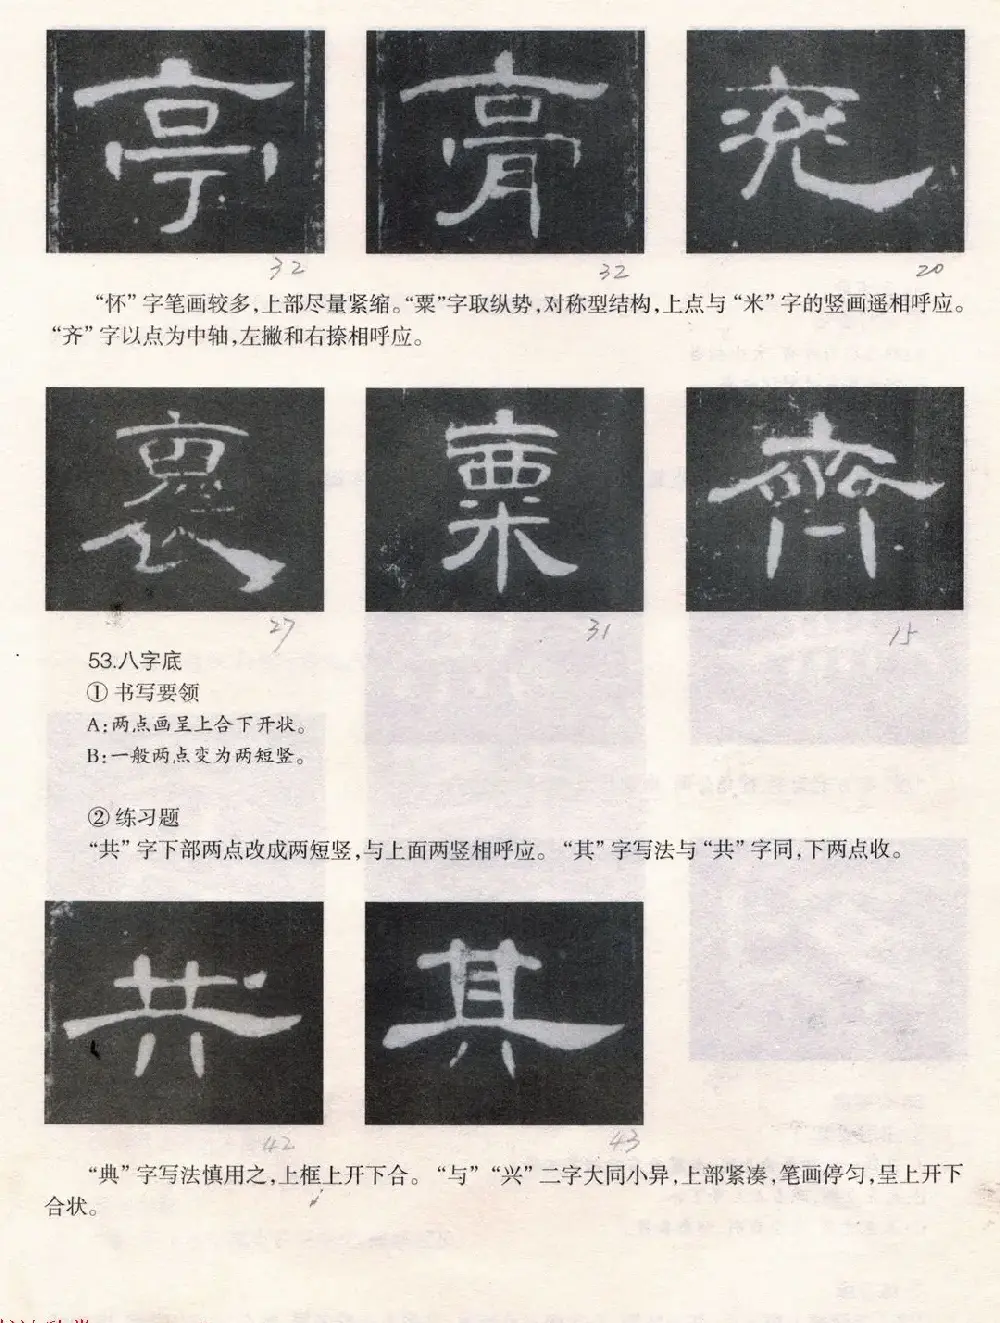 亭 膏 兖
32 32 20
“怀”字笔画较多,上部尽量紧缩。“粟”字取纵势,对称型结构,上点与“米”字的竖画遥相呼应。
“齐”字以点为中轴,左撇和右捺相呼应。
褱 粟 齊
27 31 15
53.八字底
① 书写要领
A:两点画呈上合下开状。
B:一般两点变为两短竖。
② 练习题
“共”字下部两点改成两短竖,与上面两竖相呼应。“其”字写法与“共”字同,下两点收。
共 其
42 43
“典”字写法慎用之,上框上开下合。“与”“兴”二字大同小异,上部紧凑,笔画停匀,呈上开下
合状。